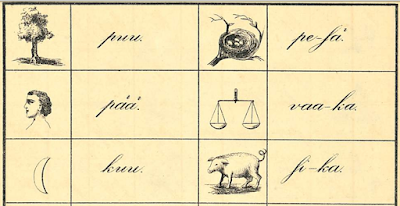 puu.
pe-ſä.
pää.
vaa-ka.
kuu.
ſi-ka.